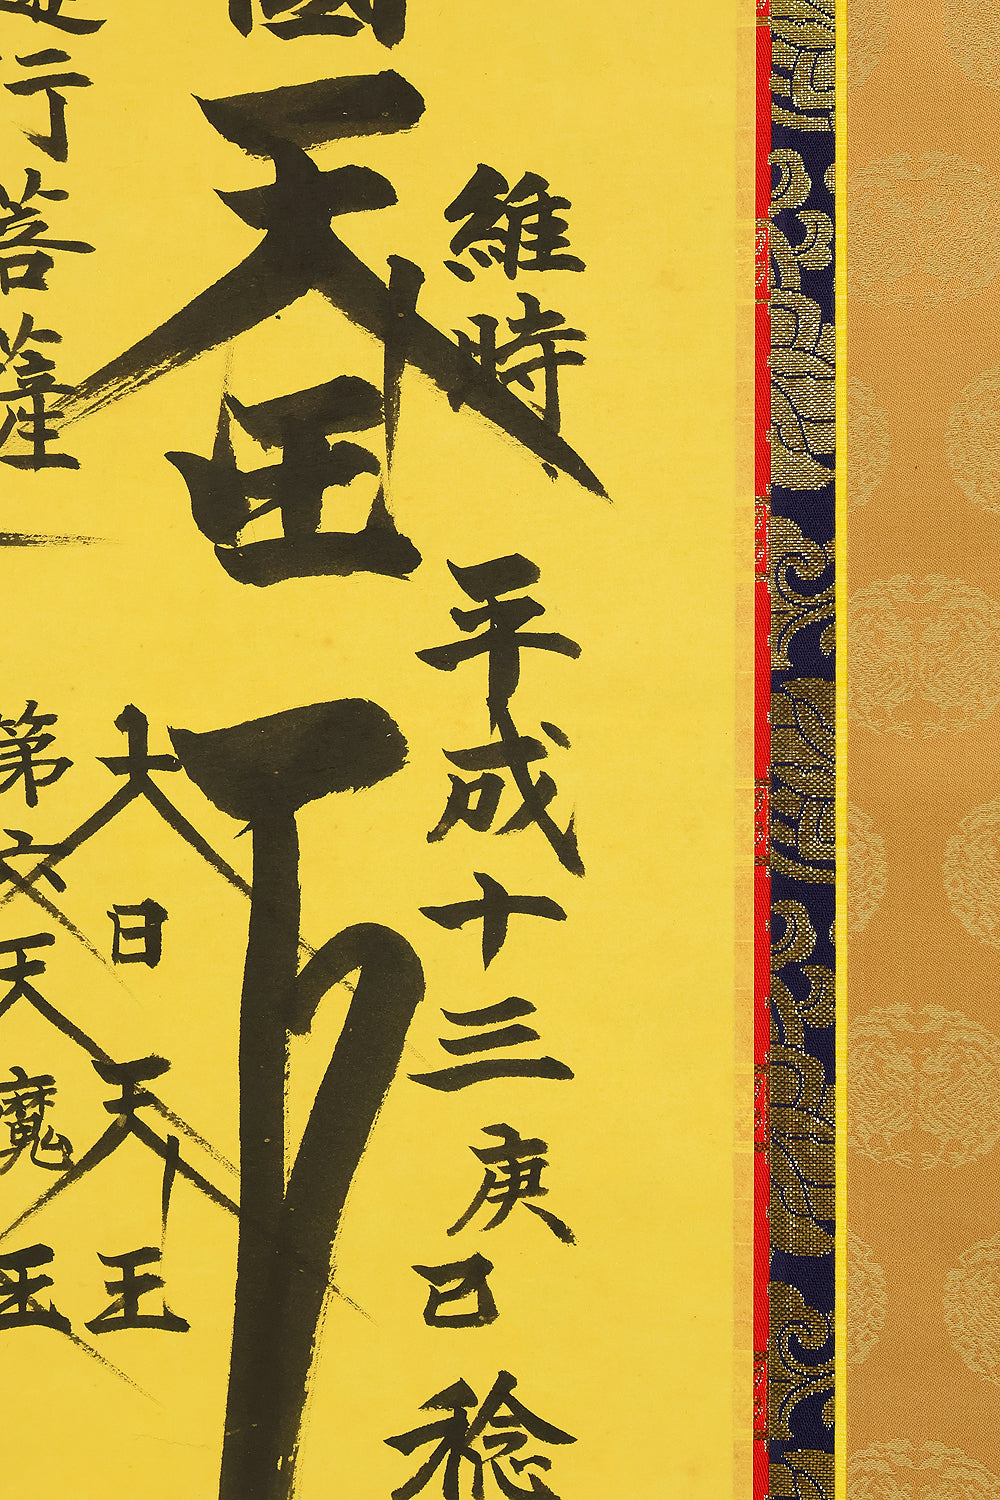 維時 平成十三庚巳稔
國天王
大日天王
行菩薩 第六天魔王